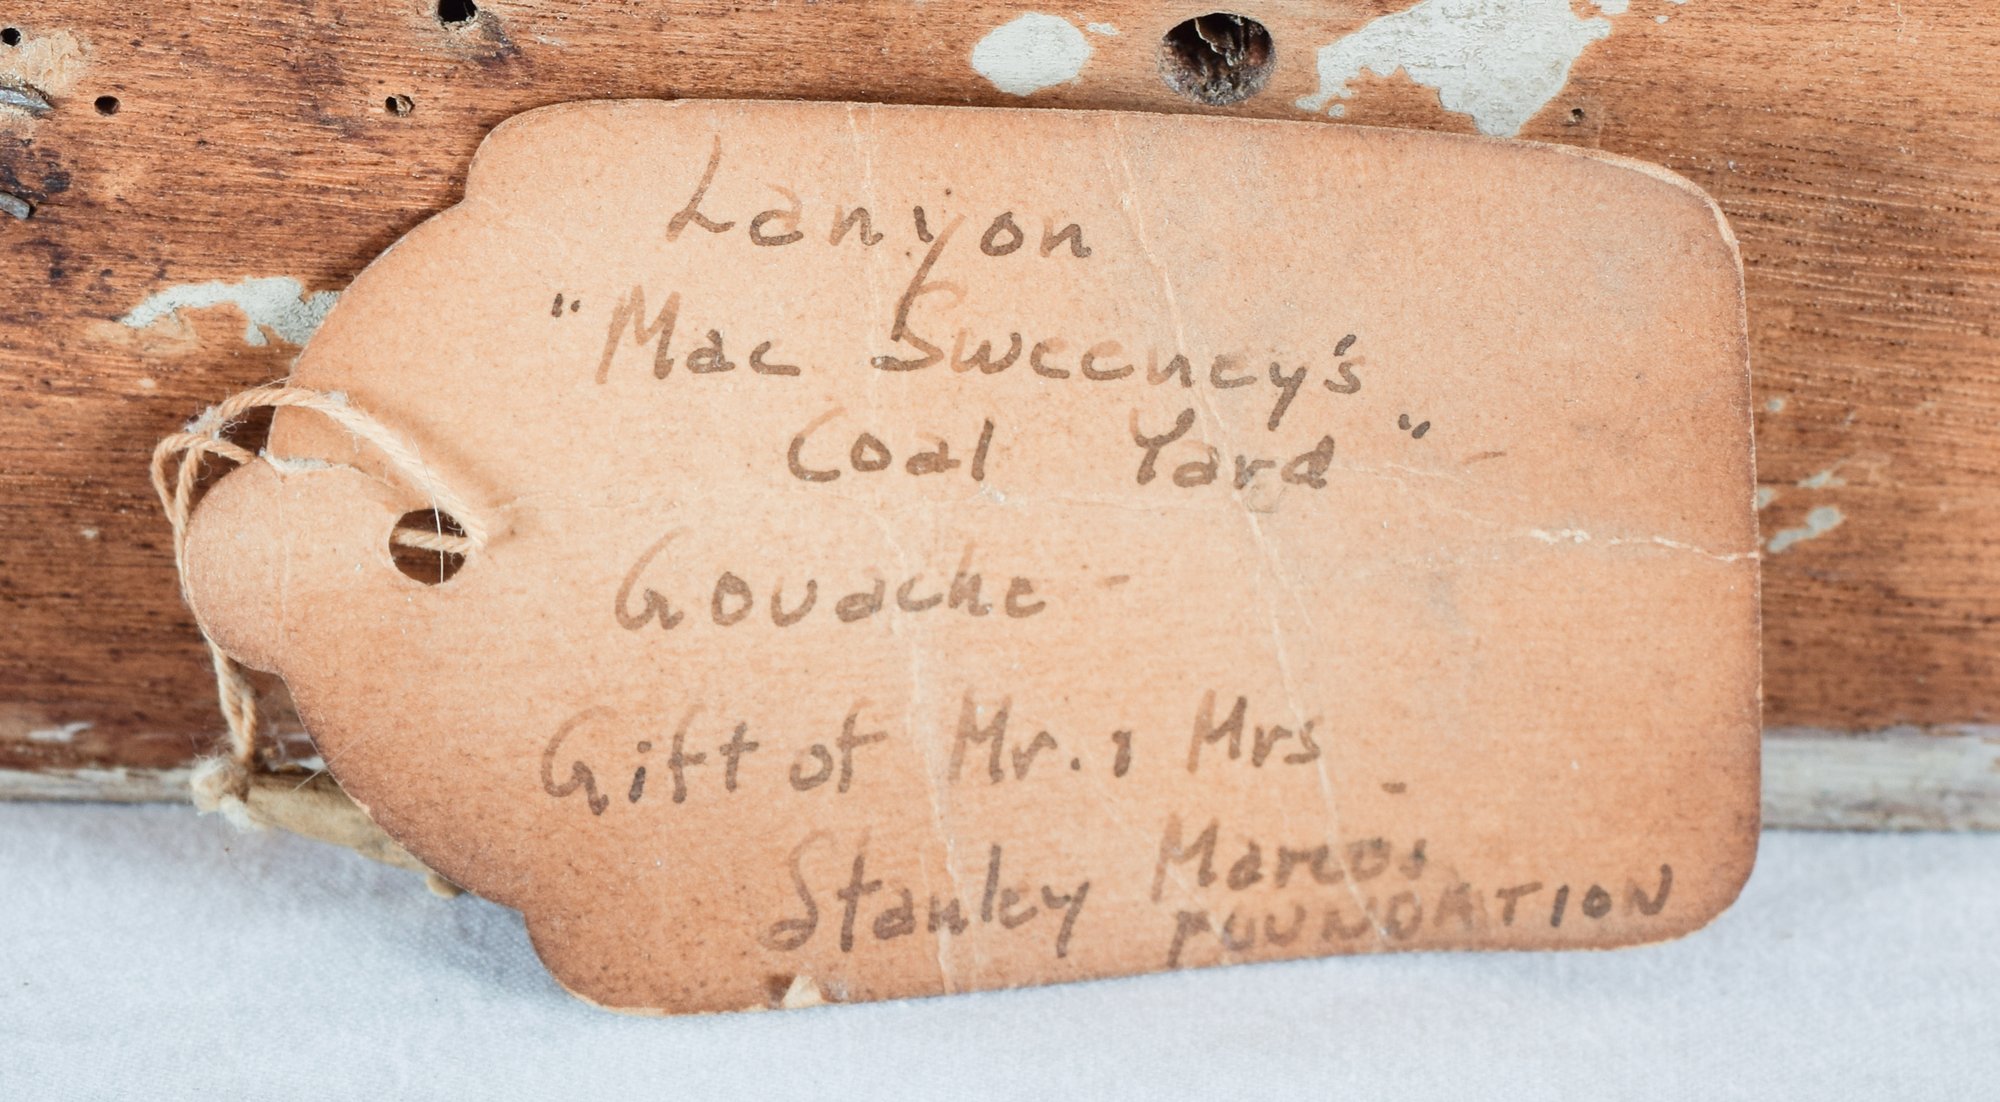 Lanyon
"Mac Sweeney's
Coal Yard" -
Gouache -
Gift of Mr. & Mrs -
Stanley Marcos
FOUNDATION